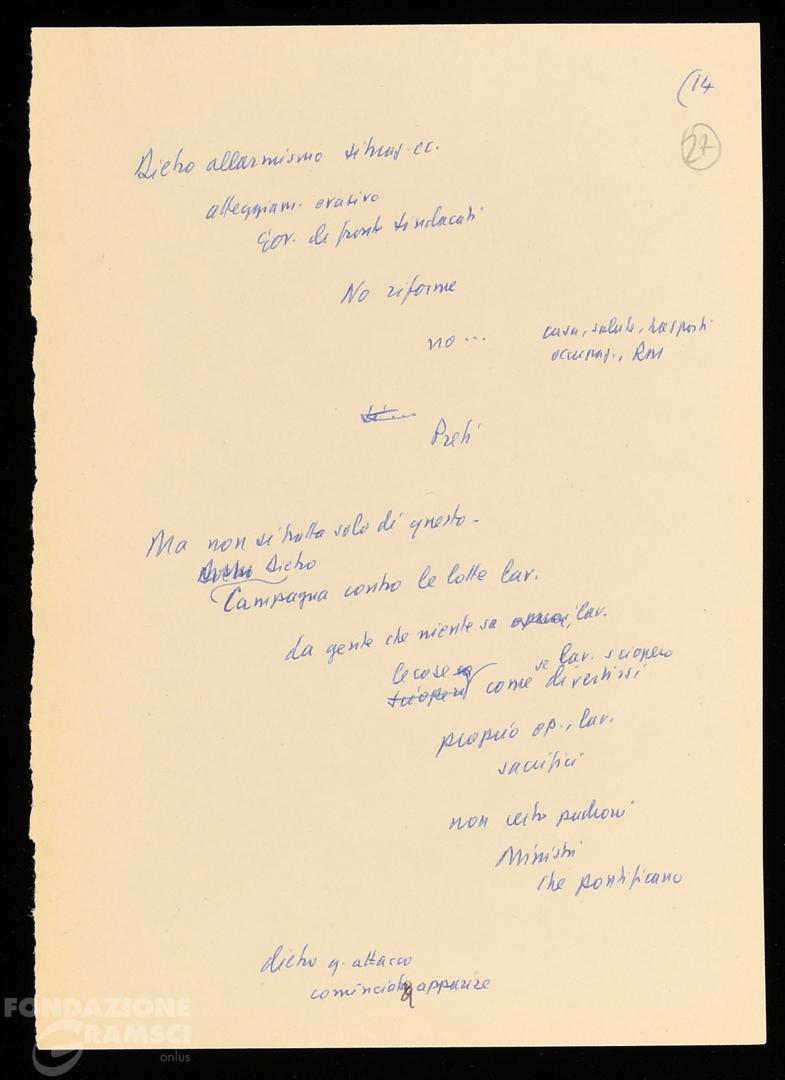 (14
27
Dietro allarmismo situaz. ec.
atteggiam. evasivo
Gov. di fronte sindacati
No riforme
no... casa, salute, trasporti
occupaz., RM
Preti
Ma non si tratta solo di questo -
Dietro
Campagna contro le lotte lav.
da gente che niente sa lav.
le cose se lav. sciopero
come divertirsi
proprio op., lav.
sacrifici
non certo padroni
Ministri
che pontificano
dietro q. attacco
cominciato a apparire
FONDAZIONE
GRAMSCI
onlus